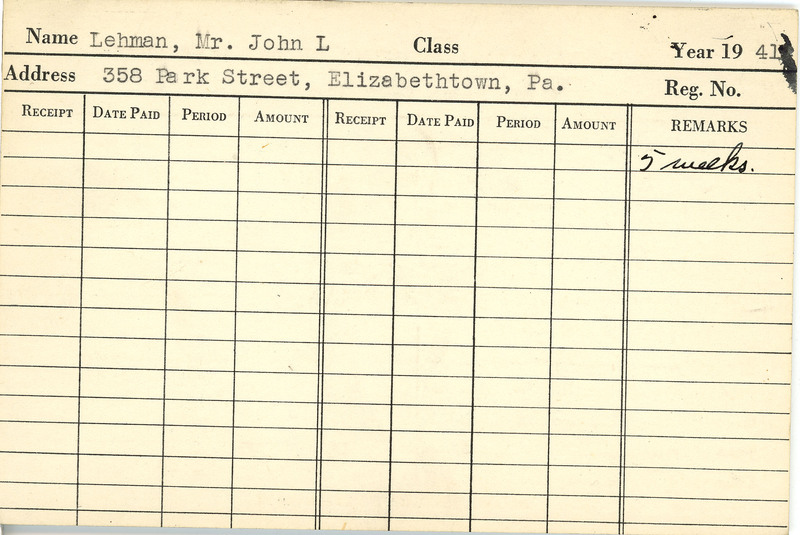 Name Lehman, Mr. John L Class Year 19 41
Address 358 Park Street, Elizabethtown, Pa. Reg. No.
RECEIPT DATE PAID PERIOD AMOUNT RECEIPT DATE PAID PERIOD AMOUNT REMARKS
5 weeks.